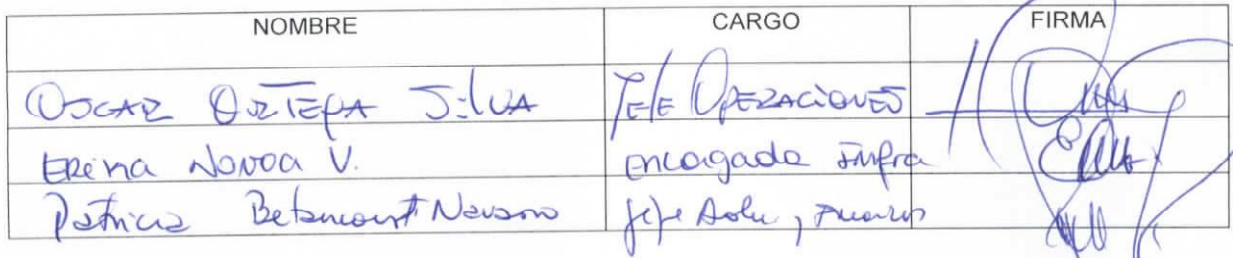 NOMBRE CARGO FIRMA
OSCAR ORTEGA SILVA JEFE OPERACIONES
ERENA NOVOA V. encargada infra
Patricia Betancourt Navarro Jefe Adm y